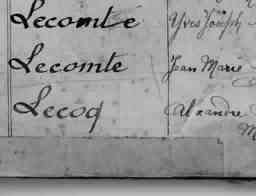 Lecomte Yves Joseph
Lecomte Jean Marie
Lecoq Alexandre
M